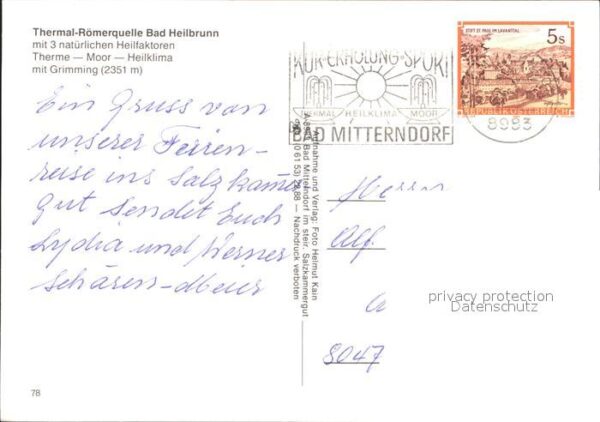 Thermal-Römerquelle Bad Heilbrunn
mit 3 natürlichen Heilfaktoren
Therme — Moor — Heilklima
mit Grimming (2351 m)
Ein Gruss von
unserer Ferien-
reise ins Salzkammer
gut sendet Euch
Lydia und Werner
Schären-Meier
78
KUR·ERHOLUNG·SPORT
THERMAL HEILKLIMA MOOR
BAD MITTERNDORF
STIFT ST. PAUL IM LAVANTTAL
5 S
REPUBLIK ÖSTERREICH
8983
Aufnahme und Verlag: Foto Helmut Kain
Bad Mitterndorf im steir. Salzkammergut
— Nachdruck verboten
Herrn
Alf.
8047
privacy protection
Datenschutz